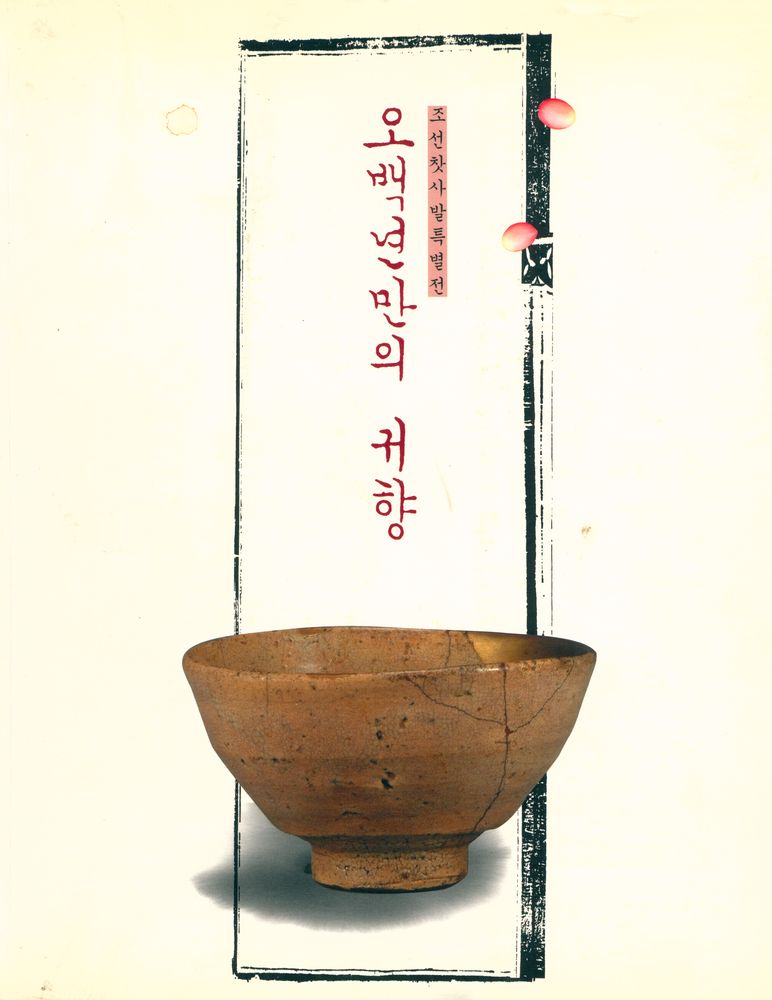 조선찻사발특별전
오백년만의 귀향